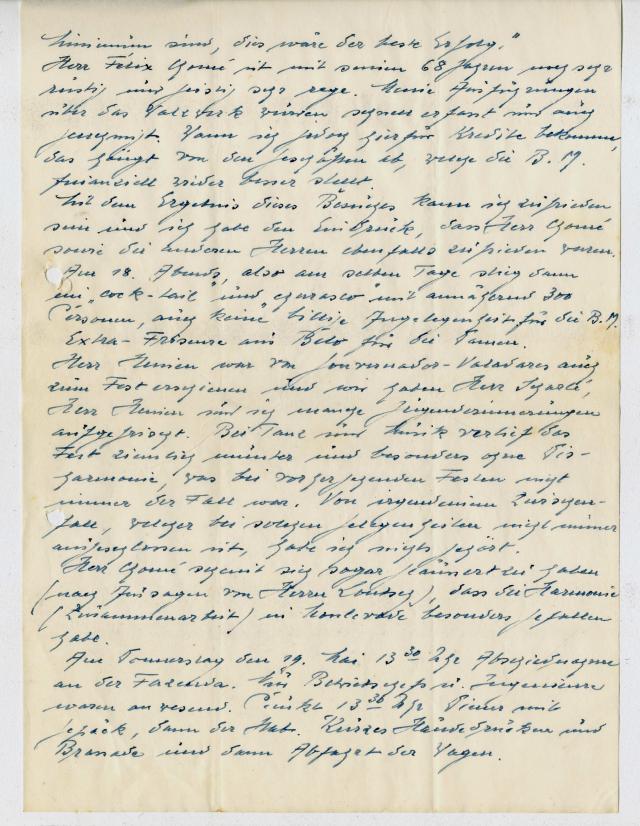 Minimum sind, dies wäre der beste Erfolg."
Herr Félix Chomé ist mit seinen 68 Jahren noch sehr
rüstig und geistig sehr rege. Meine Ausführungen
über das Walzwerk wurden schnell erfasst und auch
genehmigt. Wann ich jedoch hierfür Kredite bekomme,
das hängt von den Geschäften ab, welche die B.M.
finanziell wieder besser stellt.
Mit dem Ergebnis dieses Besuches kann ich zufrieden
sein und ich habe den Eindruck, dass Herr Chomé
sowie die anderen Herren ebenfalls zufrieden waren.
Am 18. Abends, also am selben Tage stieg dann
ein "cock-tail" und churasco" mit annähernd 300
Personen, auch keine billige Angelegenheit für die B.M.
Extra-Friseure aus Belo für die Damen.
Herr Hennen war von Gouvernador-Valadares auch
zum Fest erschienen und wir haben Herr Scharlé,
Herr Hennen und ich manche Jugenderinnerungen
aufgefrischt. Bei Tanz und Musik verlief das
Fest ziemlich munter und besonders ohne Dis-
harmonie, was bei vorhergehenden Festen nicht
immer der Fall war. Von irgendeinem Zwischen-
fall, welcher bei solchen Gelegenheiten nicht immer
ausgeschlossen ist, habe ich nichts gehört.
Herr Chomé scheint sich sogar geäussert zu haben
(nach Aussagen von Herrn Loutsch), dass die Harmonie
(Zusammenarbeit) in Monlevade besonders gefallen
habe.
Am Donnerstag den 19. Mai 13 30 Uhr Abschiednahme
an der Fazenda. Alle Betriebschefs u. Ingenieure
waren anwesend. Punkt 13 30 Uhr Diener mit
Gepäck, dann der Stab. Kurzes Händedrücken und
und dann Abfahrt der Wagen.